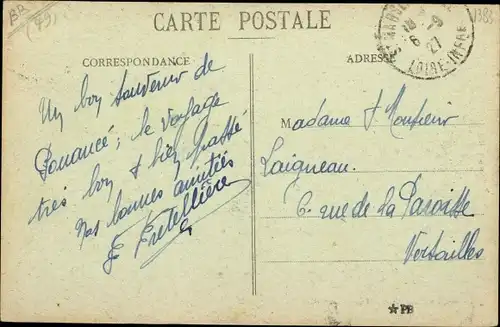 BR
(49)
CARTE POSTALE
CORRESPONDANCE
ADRESSE
6-9
27
LOIRE-INFRE
Un bon souvenir de
Pouancé; le voyage
très bon & bien passé
Mes bonnes amitiés
E Fretellière
Madame & Monsieur
Laigneau.
6. rue de La Paroisse
Versailles
★PB